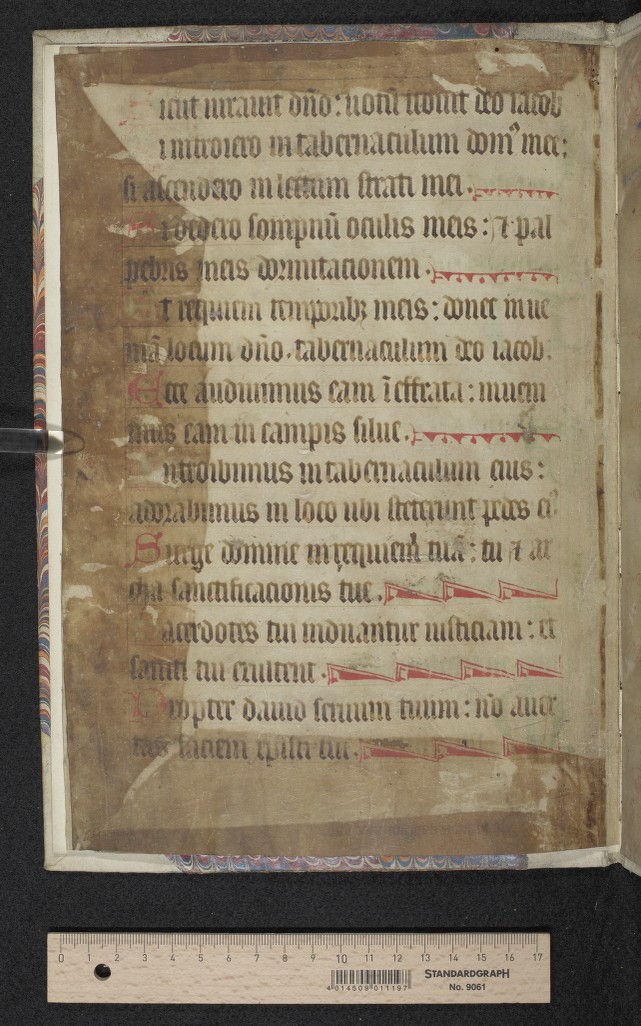 icut iurauit dño: uotũ uouit deo iacob
i introiero in tabernaculum domꝰ mee:
si ascendero in lectum strati mei.
i dedero sompnũ oculis meis: ⁊ pal
pebris meis dormitacionem.
t requiem temporibꝫ meis: donec inue
niã locum dño. tabernaculum deo iacob.
Ecce audiuimus eam ĩ effrata: inuem
mus eam in campis silue.
ntroibimus in tabernaculum eius:
adorabimus in loco ubi steterunt pedes eiꝰ
Surge domine in requiem tuã: tu ⁊ ar
cha sanctificacionis tue.
acerdotes tui induantur iusticiam: et
sancti tui exultent.
Propter dauid seruum tuum: nõ auer
tas faciem xpisti tui.
0 1 2 3 4 5 6 7 8 9 10 11 12 13 14 15 16 17
4 014509 011197
STANDARDGRAPH
No. 9061